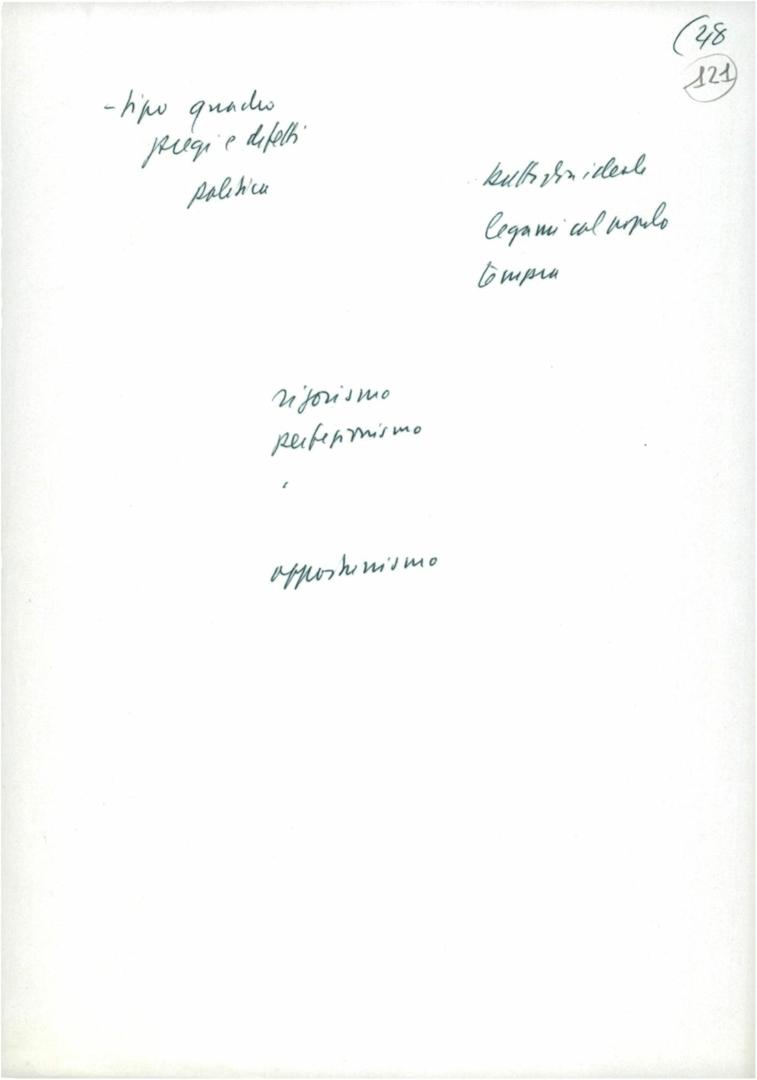 (48
121
- tipo quadro
pregi e difetti
politica
battaglia ideale
legami col popolo
tempra
rigorismo
perfezionismo
opportunismo